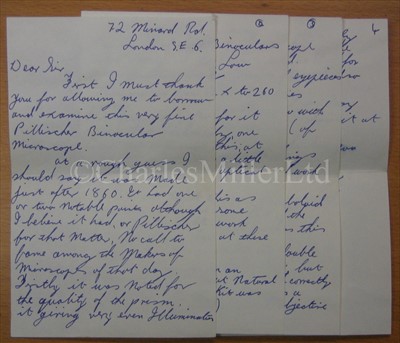 72 Minard Rd.
London S.E 6.
Dear Sir
First I must thank
you for allowing me to borrow
and examine this very fine
Pillischer Binocular
Microscope.
at a rough guess I
should say it was Made
just after 1860. It had one
or two Notable points although
I believe it had, or Pillischer
for that Matter, No call to
fame among the Makers of
Microscopes of that day
Firstly it was Noted for
the quality of the prism.
it giving very even Illumination
2
Binoculars
Low
x to 260
for it
by one
this, at
a little
optical
as
some
work
at these
an
at Natural
this was
3
eyepieces
with
(of
the
this
but
correctly
a
objective
4
so
it at
© Charles Miller Ltd